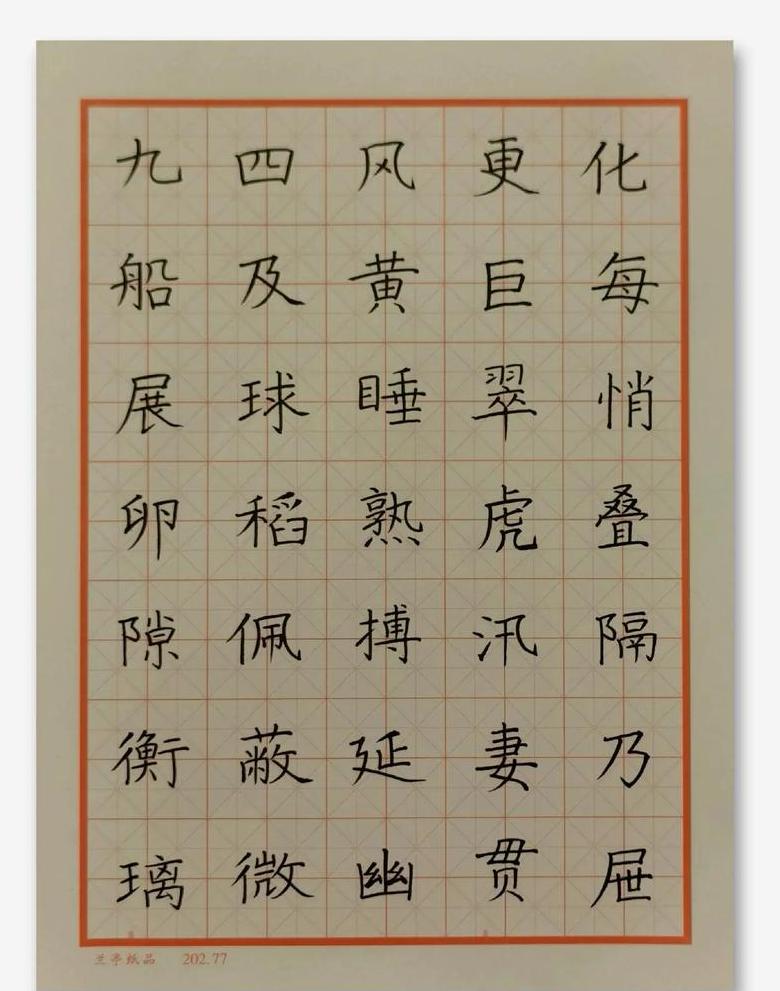 九四风更化
船及黄巨每
展球睡翠悄
卵稻熟虎叠
隙佩搏汛隔
衡蔽延妻乃
璃微幽贯屉
兰亭纸品 202.77